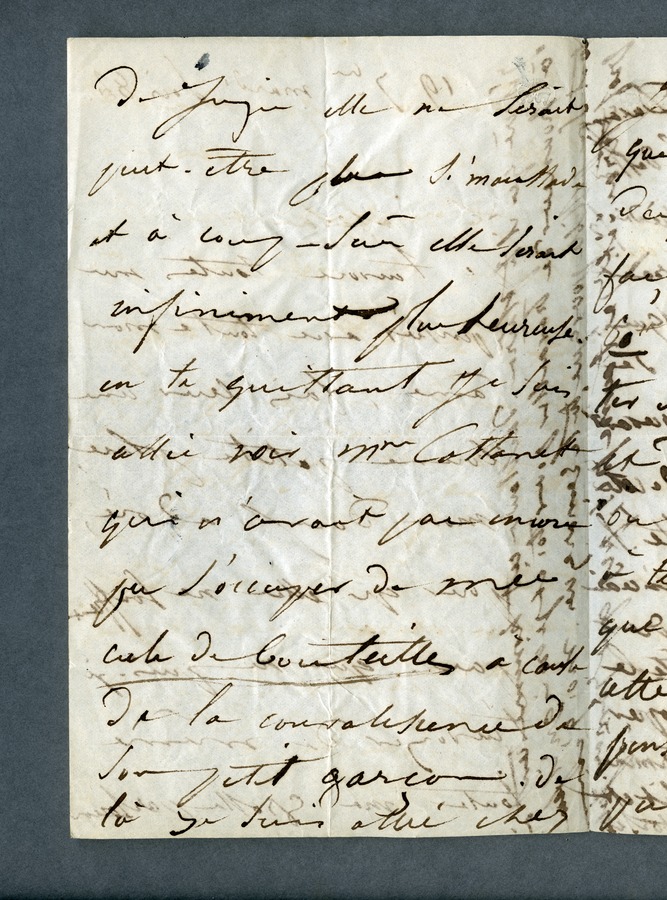 elle ne serait
peut-être plus si maussade
et à coup-sûr elle serait
infiniment plus heureuse.
en te quittant je suis
allée voir Mme Cottanet
qui n'avait pas encore
pu s'occuper de mes
cule de bouteilles à cause
de la convalescence de
son petit garçon. de
là je suis allée chez
que
fac
ou
que
cette